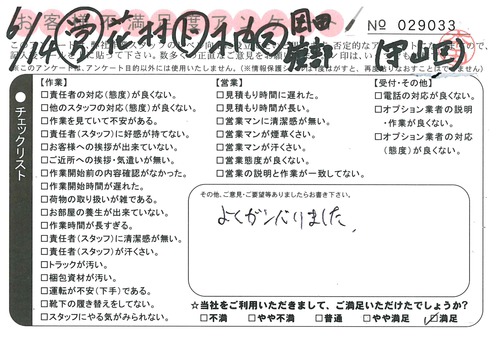 お客様不満足度アンケート
6/14
No 029033
守山区
チェックリスト
【作業】
□責任者の対応(態度)が良くない。
□他のスタッフの対応(態度)が良くない。
□作業を見ていて不安がある。
□責任者(スタッフ)に好感が持てない。
□お客様への挨拶が出来ていない。
□ご近所への挨拶・気遣いが無い。
□作業開始前の内容確認がなかった。
□作業開始時間が遅れた。
□荷物の取り扱いが雑である。
□お部屋の養生が出来ていない。
□作業時間が長すぎる。
□責任者(スタッフ)に清潔感が無い。
□責任者(スタッフ)が汗くさい。
□トラックが汚い。
□梱包資材が汚い。
□運転が不安(下手)である。
□靴下の履き替えをしてない。
□スタッフにやる気がみられない。
【営業】
□見積もり時間に遅れた。
□見積もり時間が長い。
□営業マンに清潔感が無い。
□営業マンが煙草くさい。
□営業マンが汗くさい。
□営業態度が良くない。
□営業の説明と作業が一致してない。
【受付・その他】
□電話の対応が良くない。
□オプション業者の説明
・作業が良くない。
□オプション業者の対応
(態度)が良くない。
その他、ご意見・ご要望等ありましたらお書き下さい。
よくガンバりました。
☆当社をご利用いただきまして、ご満足いただけたでしょうか?
□不満 □やや不満 □普通 □やや満足 ☑満足